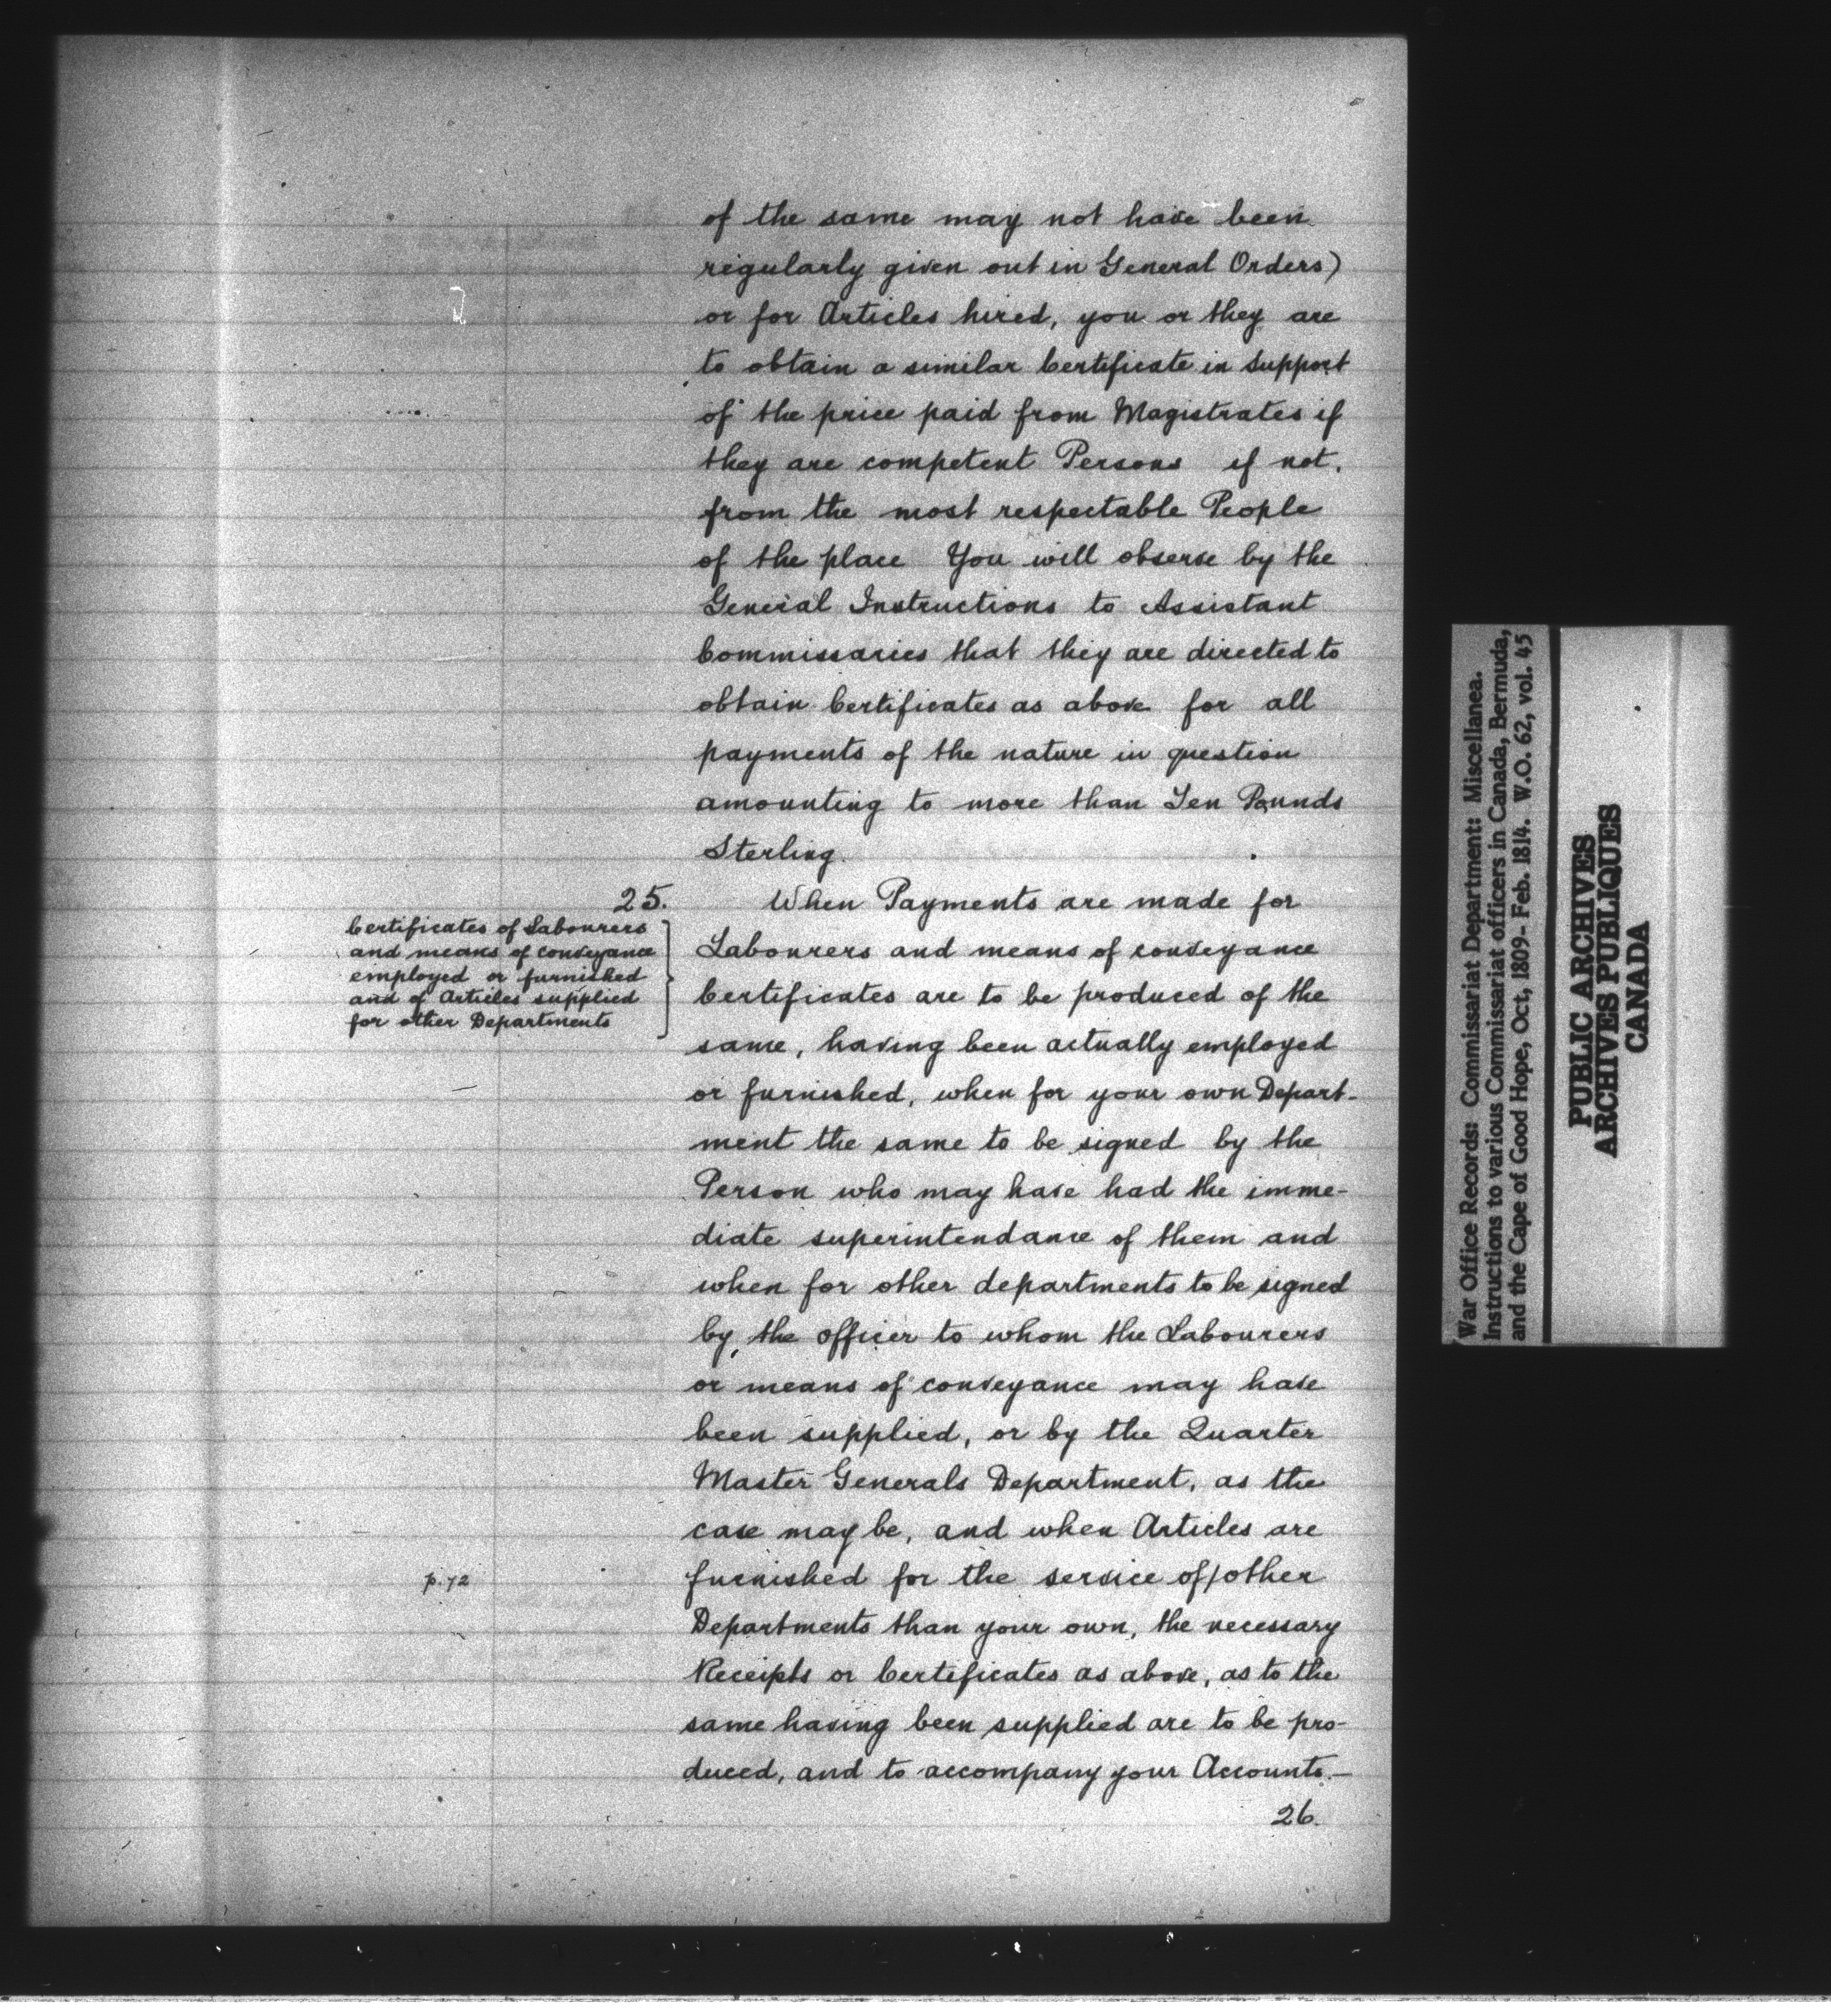 of the same may not have been
regularly given out in General Orders)
or for Articles hired, you or they are
to obtain a similar Certificate in Support
of the price paid from Magistrates if
they are competent Persons if not,
from the most respectable People
of the place You will observe by the
General Instructions to Assistant
Commissaries that they are directed to
obtain Certificates as above for all
payments of the nature in question
amounting to more than Ten Pounds
Sterling.
25.
Certificates of Labourers
and means of conveyance
employed or furnished
and of Articles supplied
for other Departments
When Payments are made for
Labourers and means of conveyance
Certificates are to be produced of the
same, having been actually employed
or furnished, when for your own Depart-
ment the same to be signed by the
Person who may have had the imme-
diate superintendance of them and
when for other departments to be signed
by the officer to whom the Labourers
or means of conveyance may have
been supplied, or by the Quarter
Master Generals Department, as the
case may be, and when Articles are
p.72
furnished for the service of/other
Departments than your own, the necessary
Receipts or Certificates as above, as to the
same having been supplied are to be pro-
duced, and to accompany your Accounts.—
26.
War Office Records: Commissariat Department: Miscellanea.
Instructions to various Commissariat officers in Canada, Bermuda,
and the Cape of Good Hope, Oct, 1809- Feb. 1814. W.O. 62, vol. 45
PUBLIC ARCHIVES
ARCHIVES PUBLIQUES
CANADA